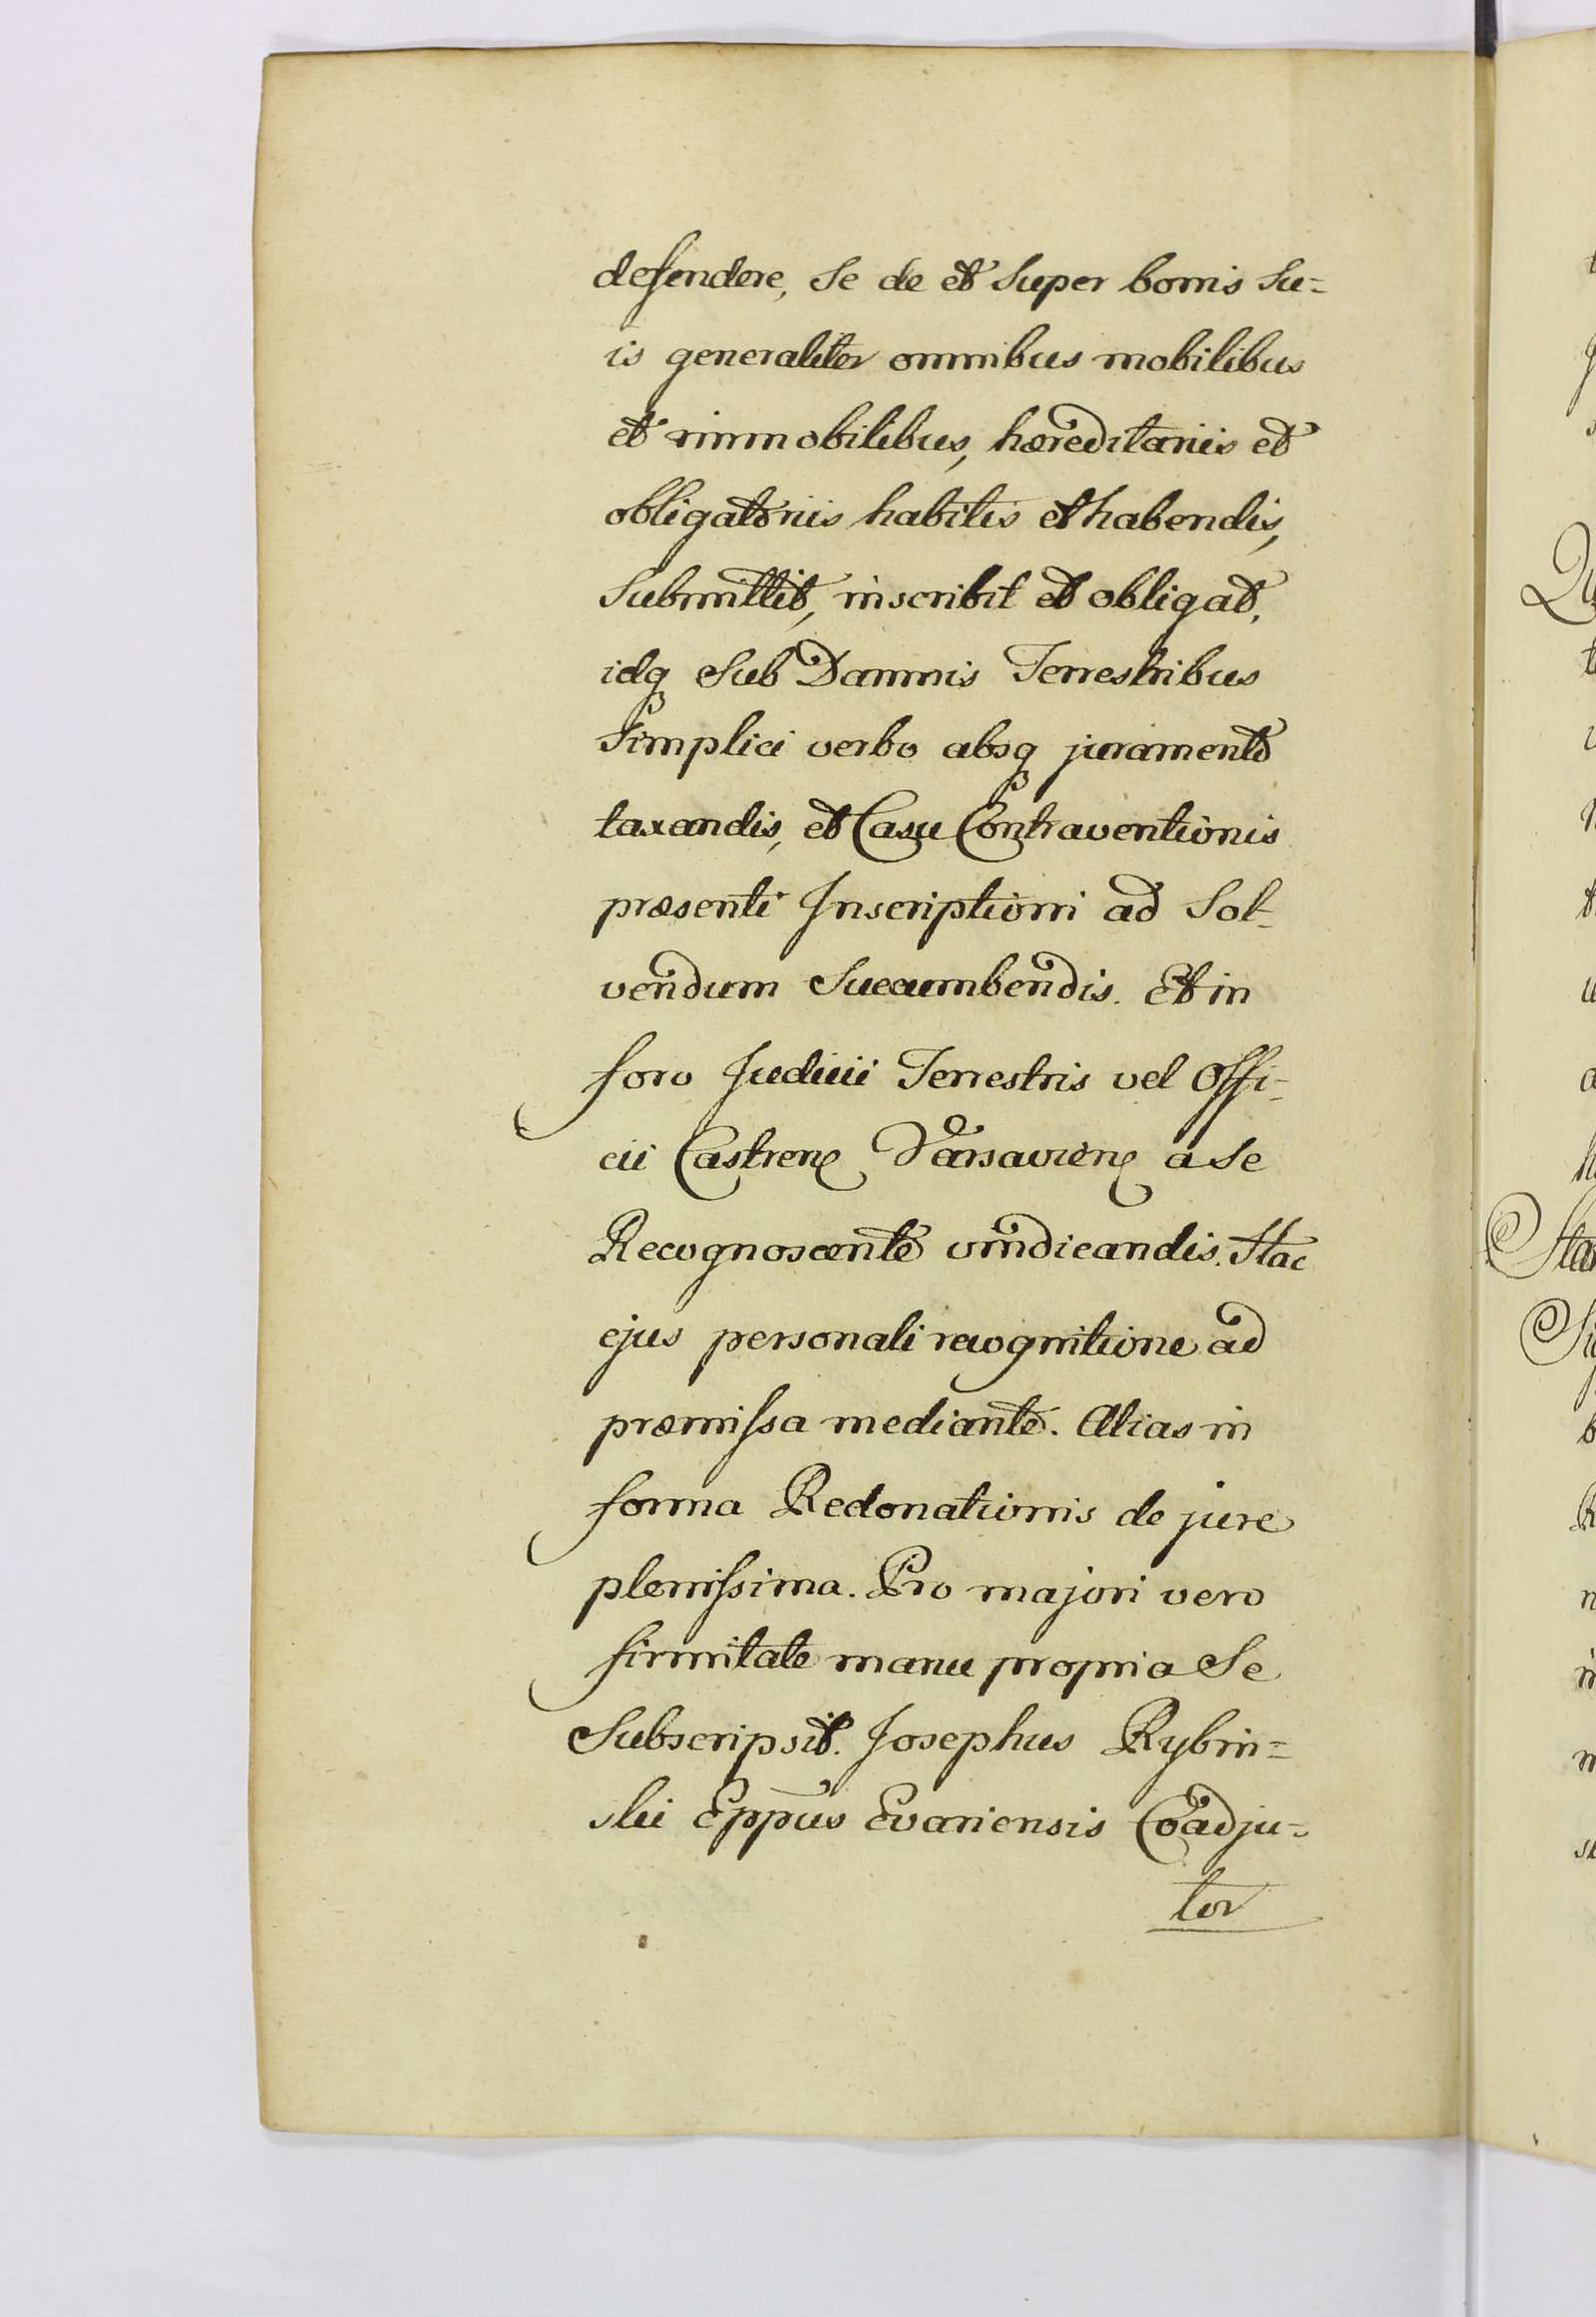 defendere, se de et super bonis su=
is generaliter omnibus mobilibus
et immobilibus, hæreditariis et
obligatoriis habitis et habendis,
submittit, inscribit et obligat,
idq sub Damnis Terrestribus
simplici verbo absq juramento
taxandis, et Casu Contraventionis
præsenti Inscriptioni ad sol-
vendum succumbendis. Et in
foro Judicii Terrestris vel Offi-
cii Castren Varsavien a se
Recognoscente vindicandis. Hac
ejus personali recognitione ad
præmissa mediante. Alias in
forma Redonationis de jure
plenissima. Pro majori vero
firmitate manu propria se
subscripsit. Josephus Rybin=
ski Eppus Evariensis Coadju=
tor